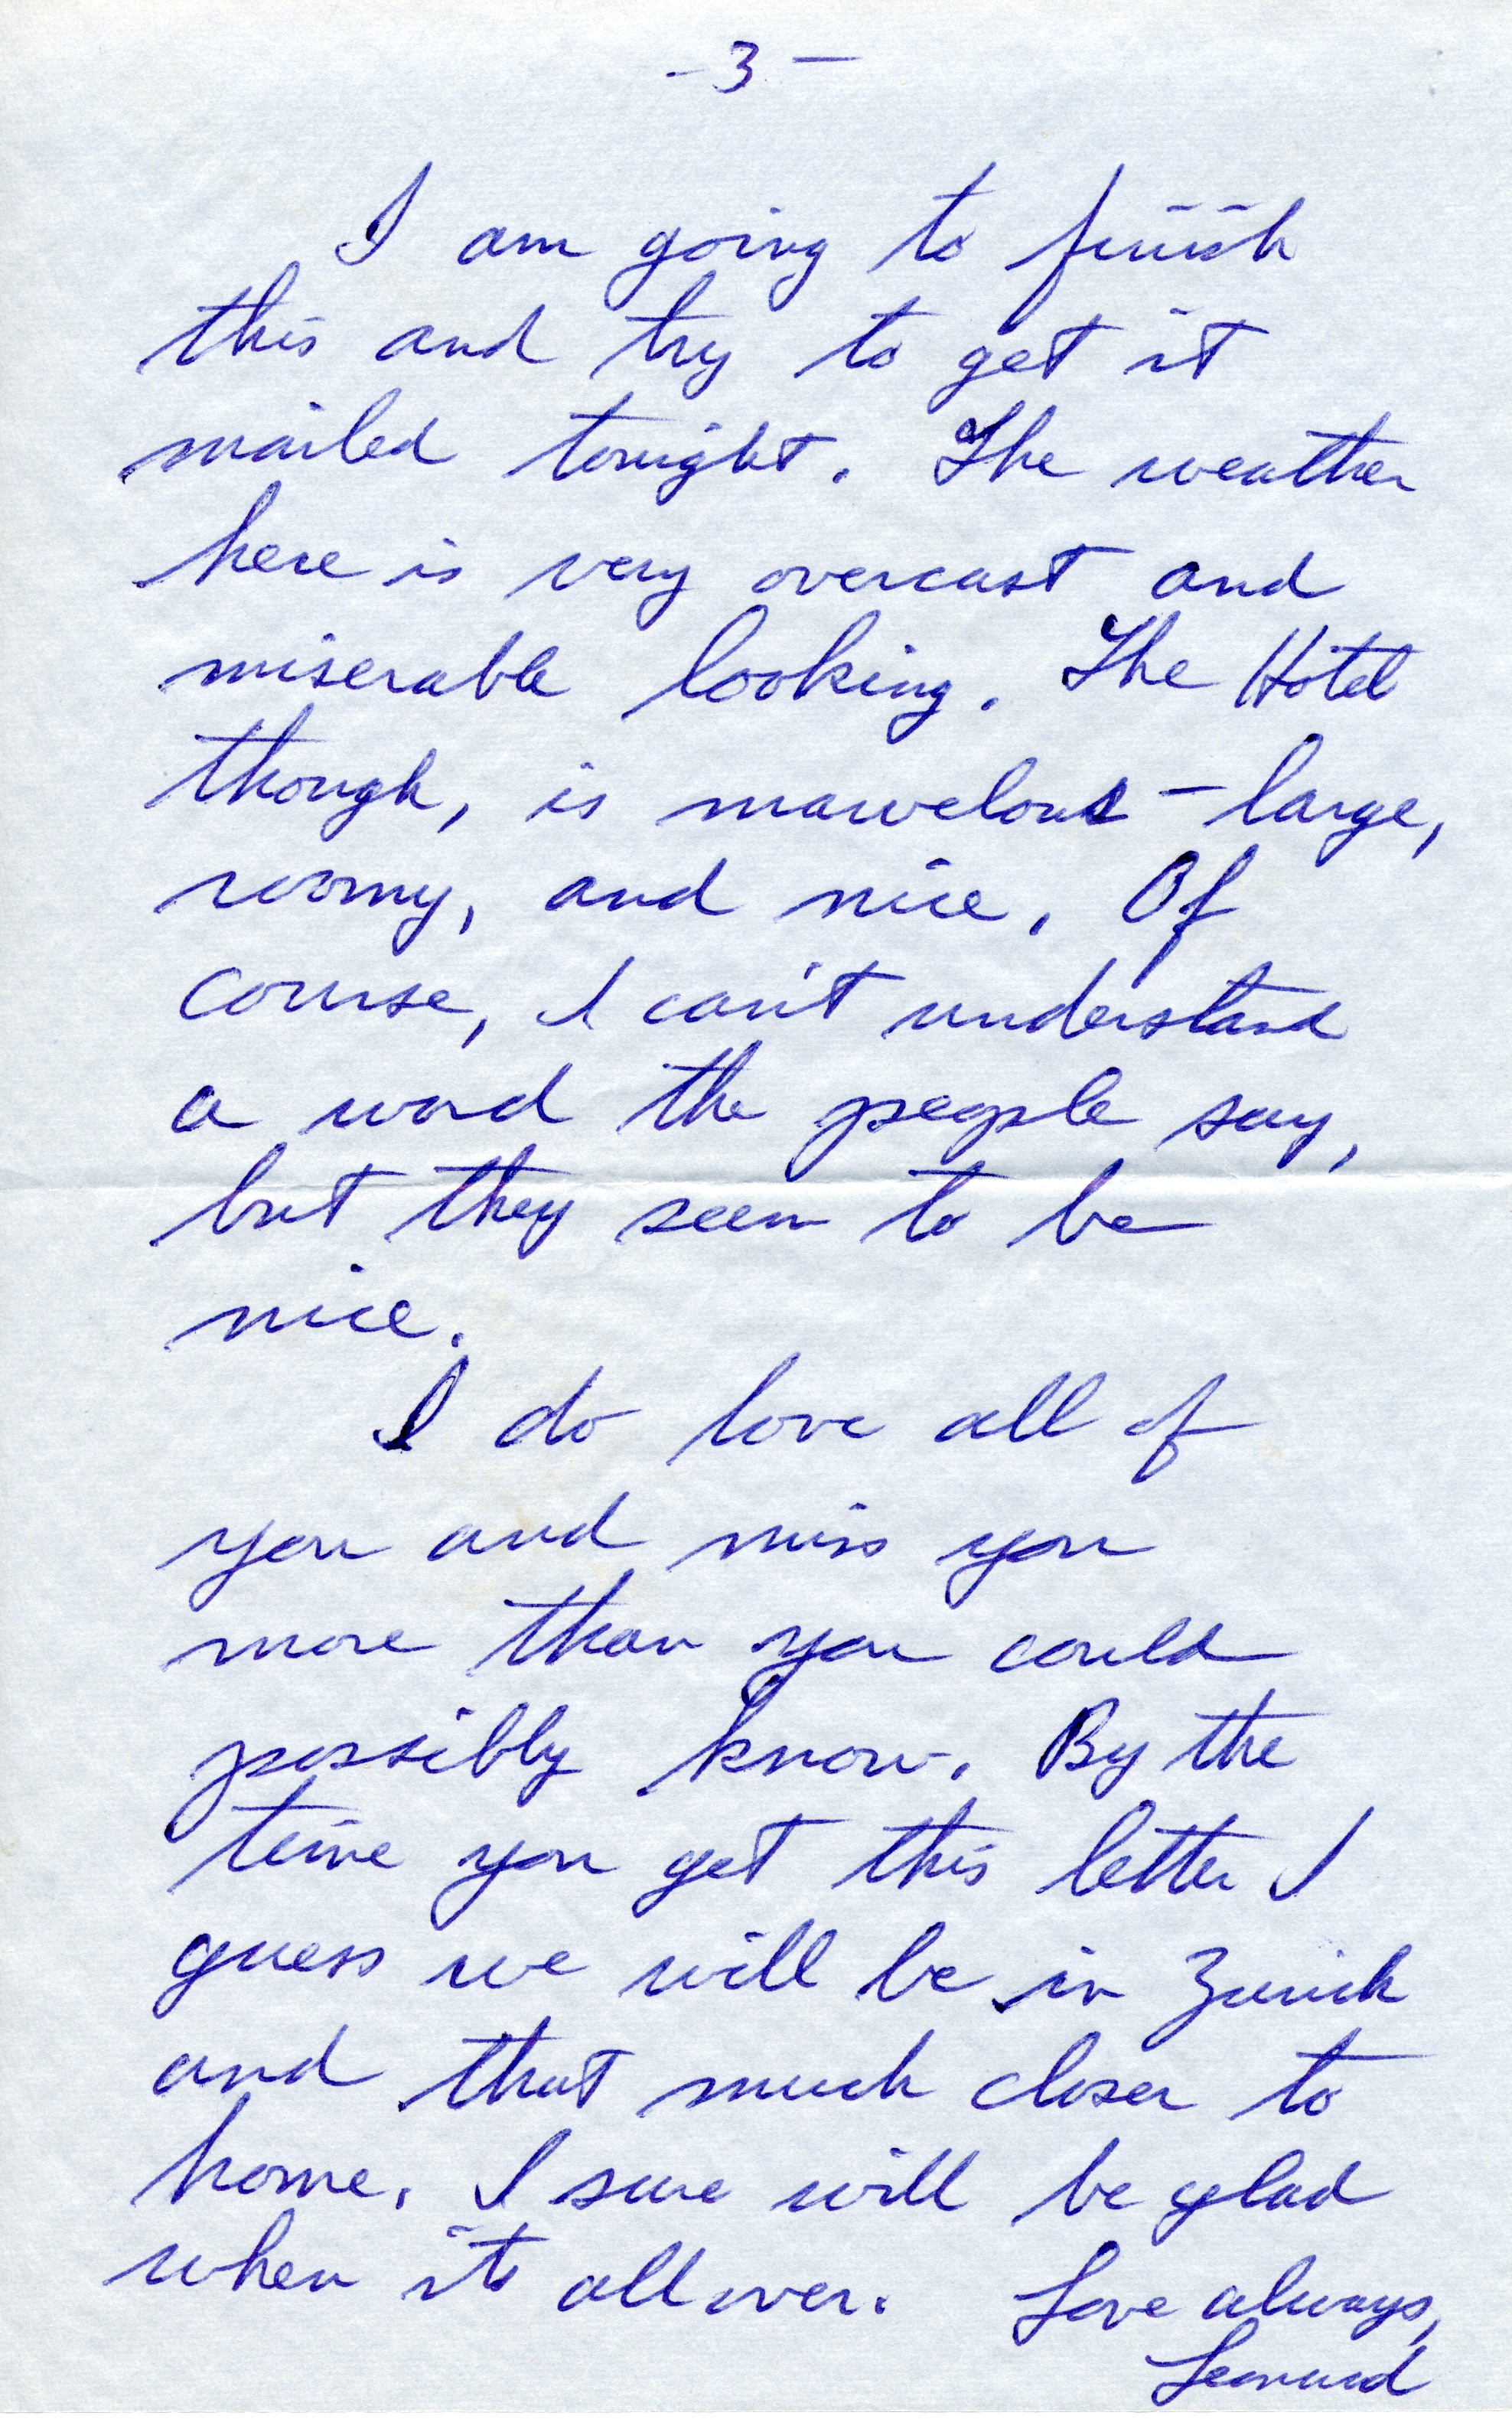 - 3 -
I am going to finish
this and try to get it
mailed tonight. The weather
here is very overcast and
miserable looking. The Hotel
though, is marvelous - large,
roomy, and nice. Of
course, I can't understand
a word the people say,
but they seem to be
nice.
I do love all of
you and miss you
more than you could
possibly know. By the
time you get this letter I
guess we will be in Zurich
and that much closer to
home. I sure will be glad
when its all over. Love always,
Leonard